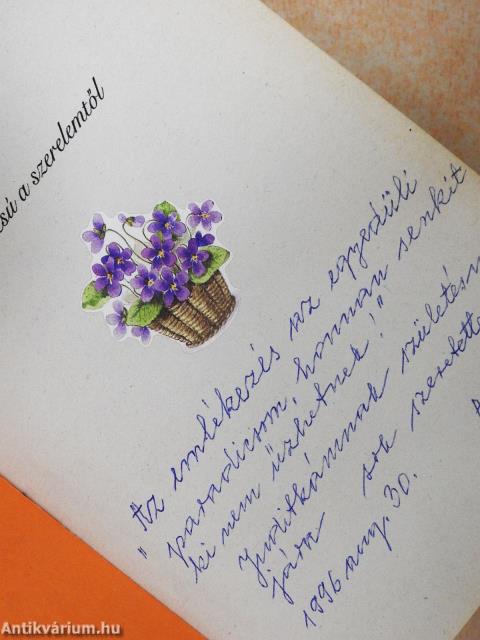 csú a szerelemtől
"Az emlékezés az egyedüli
paradicsom, honnan senkit
ki nem űzhetnek!"
Juditkámnak születésn
jára sok szeretette
1996 aug. 30.
Antikvárium.hu